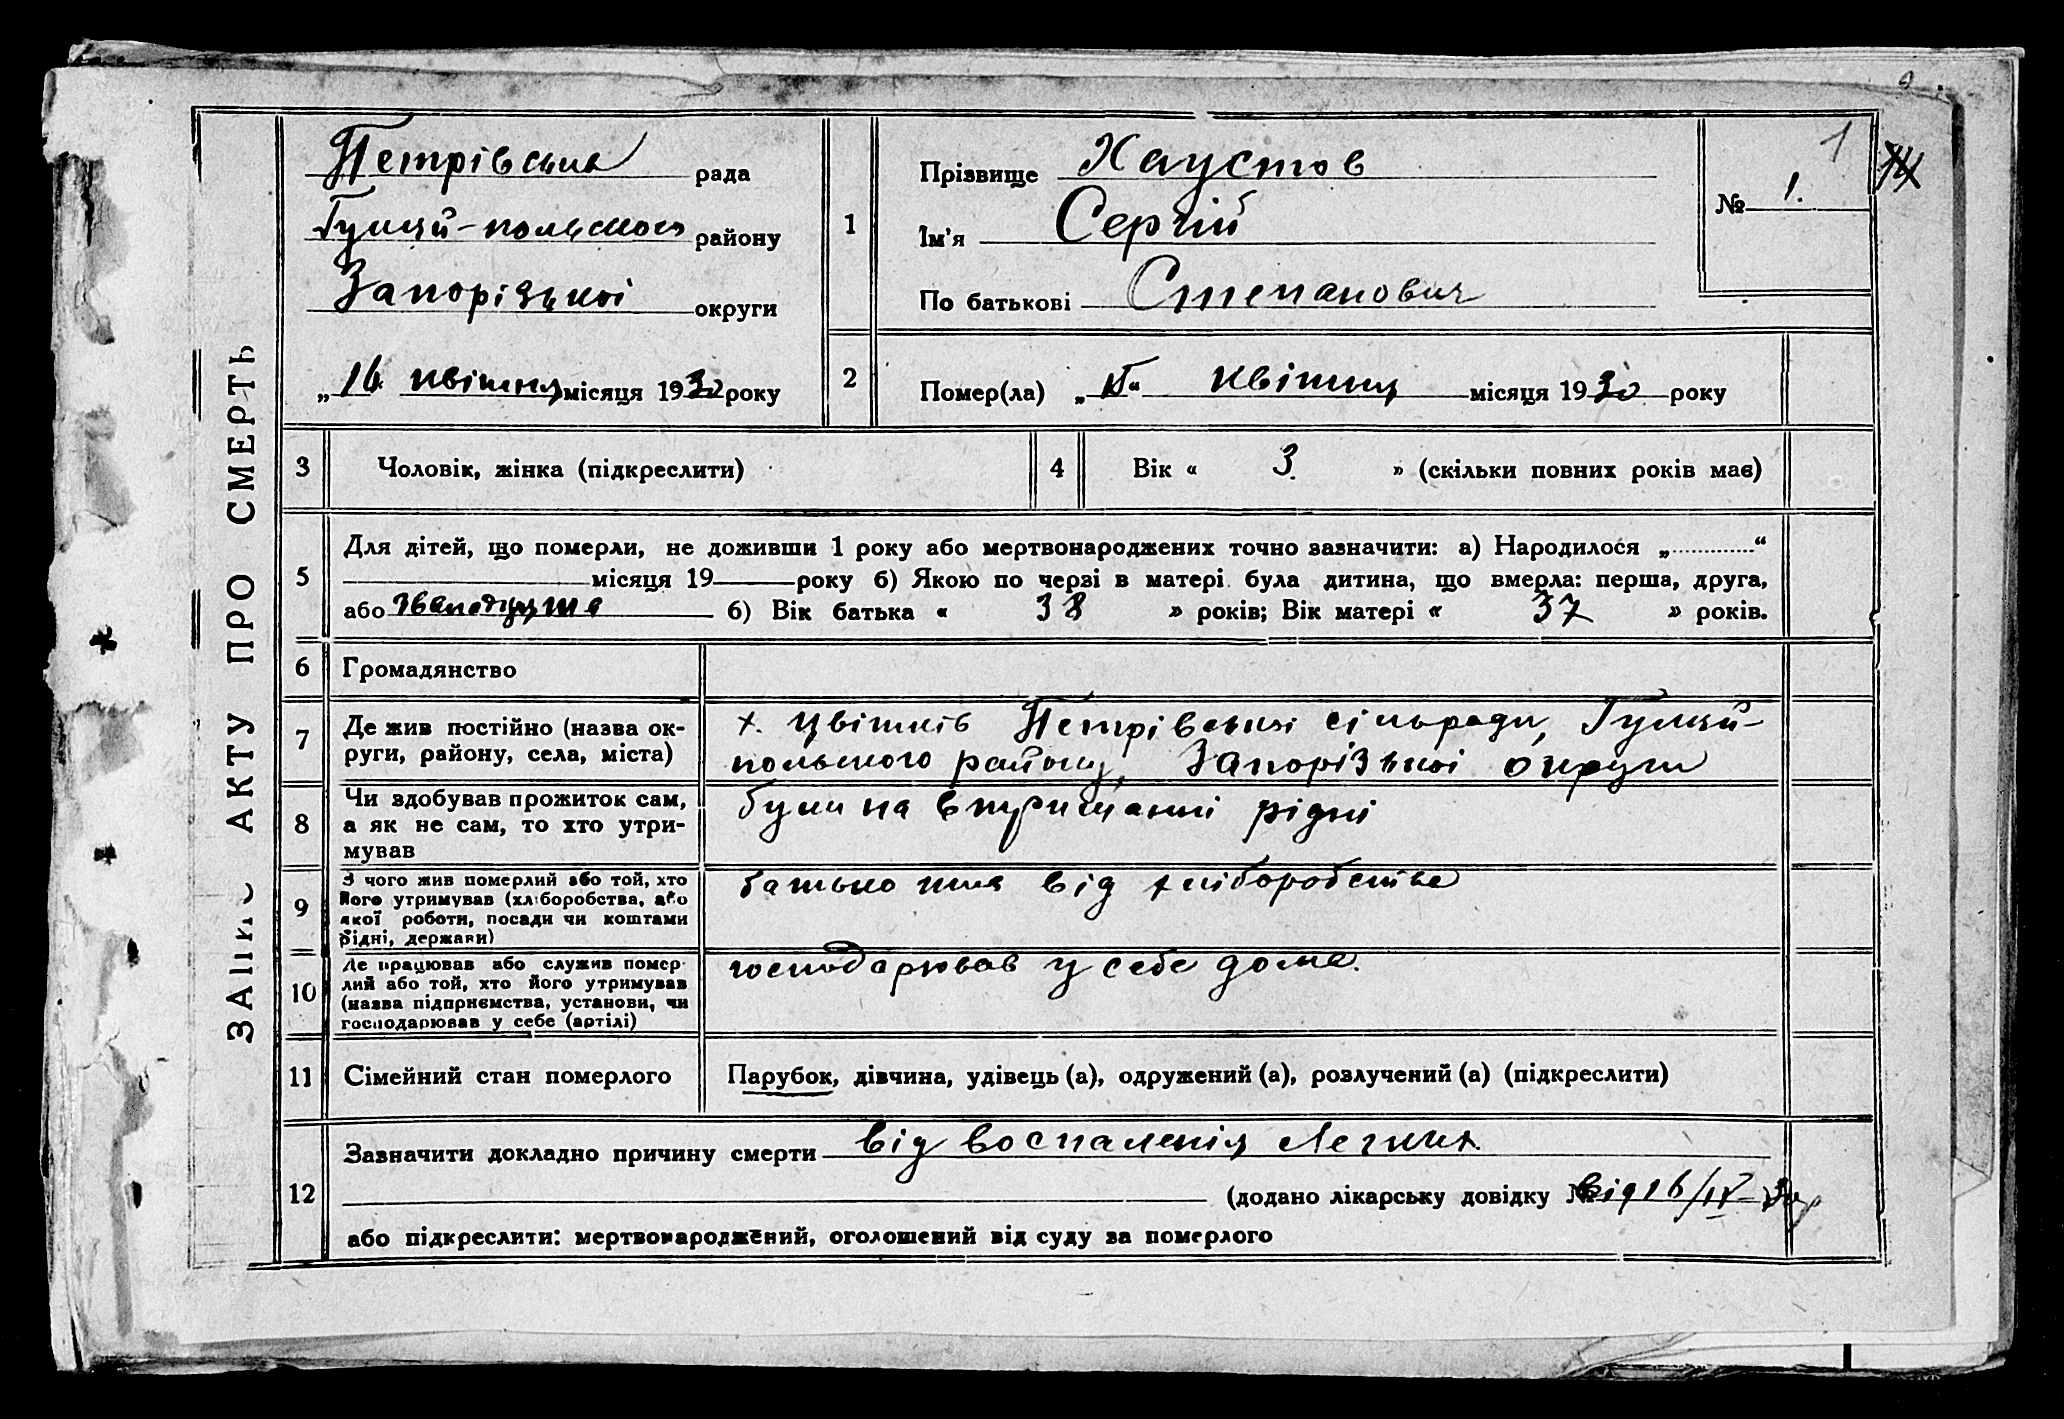 ЗАПИС АКТУ ПРО СМЕРТЬ
Петрівська рада
Гуляй-польського району
Запорізької округи
„16 квітня місяця 1930 року
1
Прізвище Хаустов
Ім'я Сергій
По батькові Степанович
№ 1.
1
2
Помер(ла) „15“ квітня місяця 1930 року
3
Чоловік, жінка (підкреслити)
4
Вік « 3 » (скільки повних років має)
5
Для дітей, що померли, не доживши 1 року або мертвонароджених точно зазначити: а) Народилося „............“
місяця 19 року б) Якою по черзі в матері була дитина, що вмерла: перша, друга,
або 6) Вік батька « 38 » років; Вік матері « 37 » років.
6
Громадянство
7
Де жив постійно (назва ок-
руги, району, села, міста)
х. Цвітків Петрівської сільради, Гуляй-
польського району, Запорізької округи
8
Чи здобував прожиток сам,
а як не сам, то хто утри-
мував
були на втриманні рідні
9
З чого жив померлий або той, хто
його утримував (хліборобства, або
якої роботи, посади чи коштами
рідні, держави)
батько жив від хліборобства
10
Де працював або служив помер-
лий або той, хто його утримував
(назва підприємства, установи, чи
господарював у себе (артілі)
господарював у себе дома.
11
Сімейний стан померлого
Парубок, дівчина, удівець (а), одружений (а), розлучений (а) (підкреслити)
12
Зазначити докладно причину смерти від воспаленія Легких
(додано лікарську довідку № від 16/IV-30р
або підкреслити: мертвонароджений, оголошений від суду за померлого